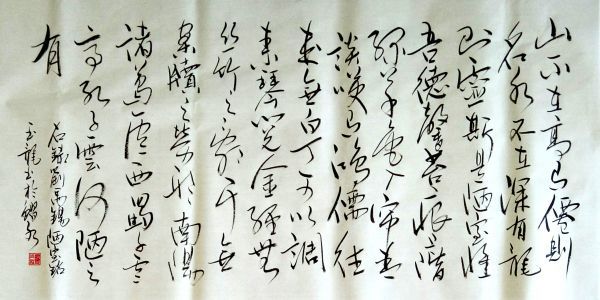 山不在高有僊則
名水不在深有龍
則靈斯是陋室惟
吾德馨苔痕階
綠草色入簾青
談笑有鴻儒往
來無白丁可以調
素琴閱金經無
絲竹之亂耳無
案牘之勞形南陽
諸葛廬西蜀子雲
亭孔子雲何陋之
有
右錄劉禹錫陋室銘
玉龍書於